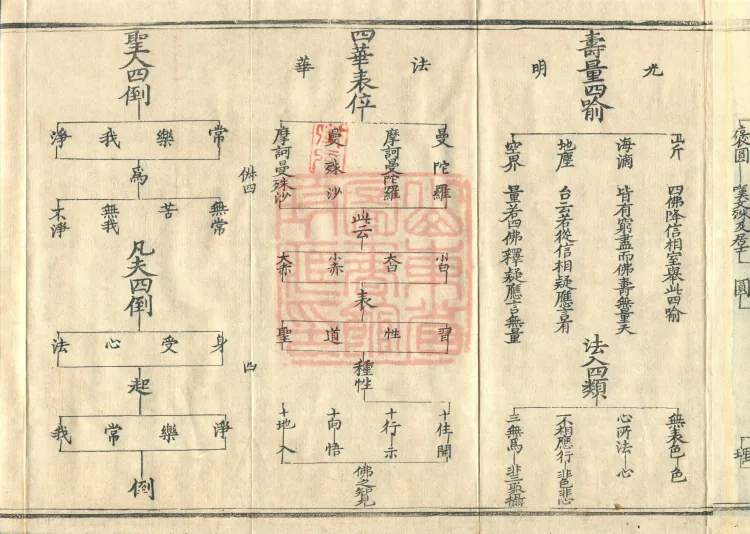 壽量四喻
光明
山斤 四佛降信相室舉此四喻
海滴 皆有窮盡而佛壽無量天
地塵 台云若從信相疑應言有
空界 量若四佛釋疑應言無量
法入四類
無表色 色
心所法 心
不相應行 非色非心
三無為 非三聚攝
四華表位
法華
曼陀羅
摩訶曼陀羅
曼殊沙
摩訶曼殊沙
此云
小白
大白
小赤
大赤
表
習
性
道
聖
種性
十住 開
十行 示
十向 悟
十地 入
佛之知見
四
聖人四倒
常
樂
我
淨
為
無常
苦
無我
不淨
凡夫四倒
身
受
心
法
起
淨
樂
常
我
倒
圓
理